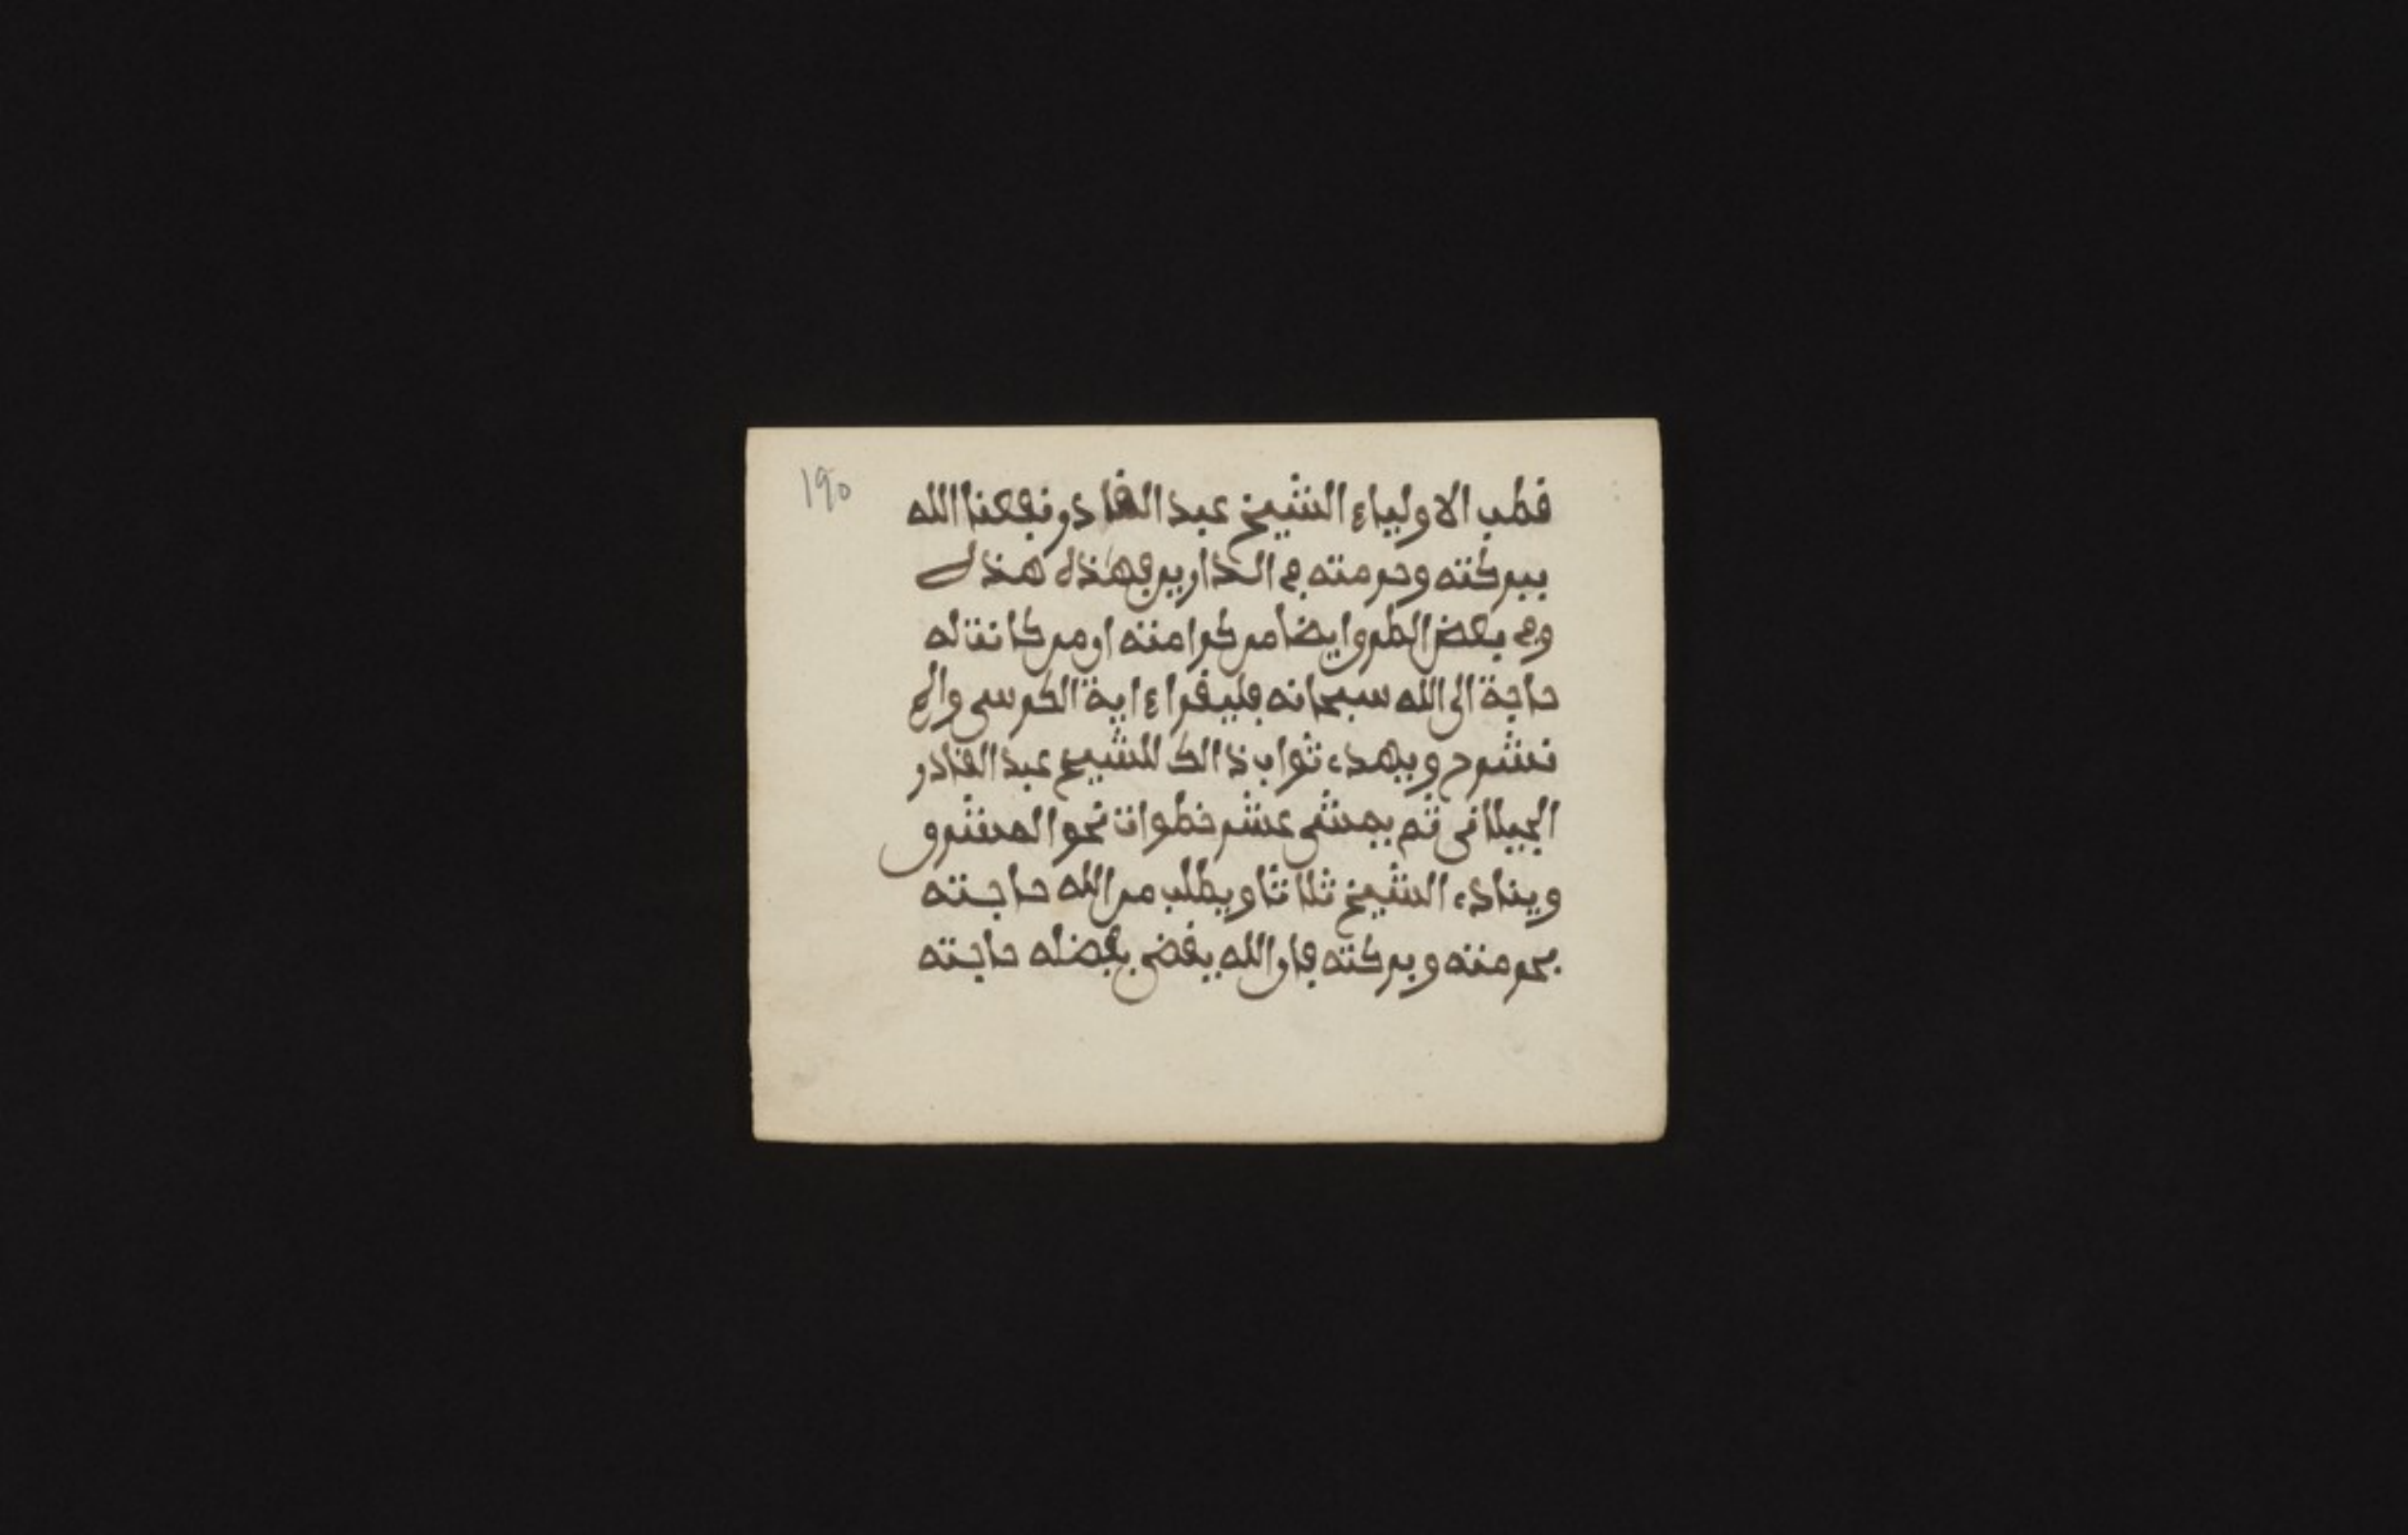 190
قطب الاولياء الشيخ عبد القادر نفعنا الله
ببركته وحرمته في الدارين فهذه هذه
وفي بعض الطرو ايضا من كرامته ان من كانت له
حاجة الى الله سبحانه فليقراء اية الكرسي والم
نشرح ويهدي ثواب ذالك للشيخ عبد القادر
الجيلاني ثم يمشي عشر خطوات نحو المشرو
وينادي الشيخ ثلاثا ويطلب من الله حاجته
بحرمته وبركته فان الله يقضي بفضله حاجته